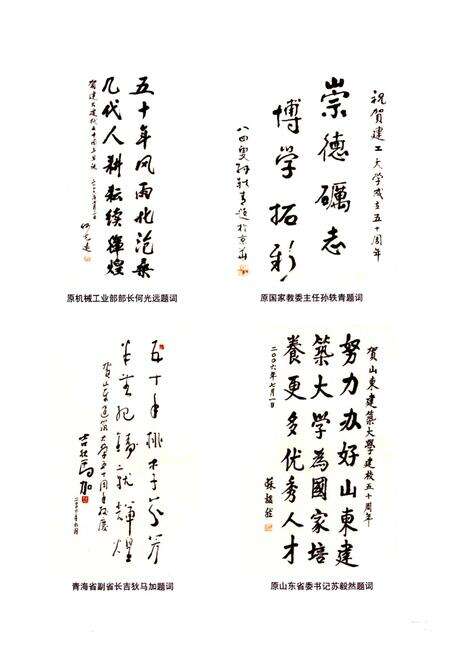 五十年风雨化沧桑
几代人耕耘续辉煌
贺建大建校五十周年
何光远
原机械工业部部长何光远题词
祝贺建工大学成立五十周年
崇德砺志
博学拓彩
八四叟孙轶青题于京华
原国家教委主任孙轶青题词
五十年桃李芬芳
半世纪铸就辉煌
贺山东建筑大学五十周年校庆
吉狄马加
二〇〇六年六月
青海省副省长吉狄马加题词
贺山东建築大學建校五十周年
努力办好山东建
築大学為國家培
養更多优秀人才
二〇〇六年七月一日
蘇毅然
原山东省委书记苏毅然题词